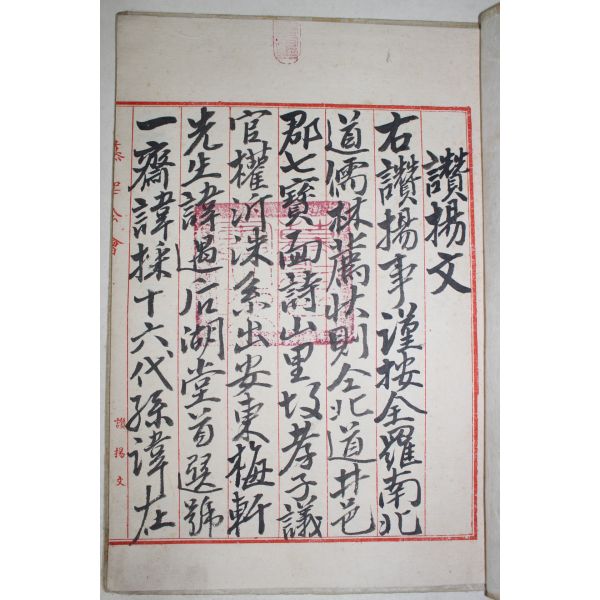 讚揚文
右讚揚事謹按全羅南北
道儒林薦狀則全北道井邑
郡七寶面詩山里故孝子議
官權沂洙系出安東梅軒
先生諱遇后湖堂首選號
一齋諱採十六代孫諱在
讚揚文